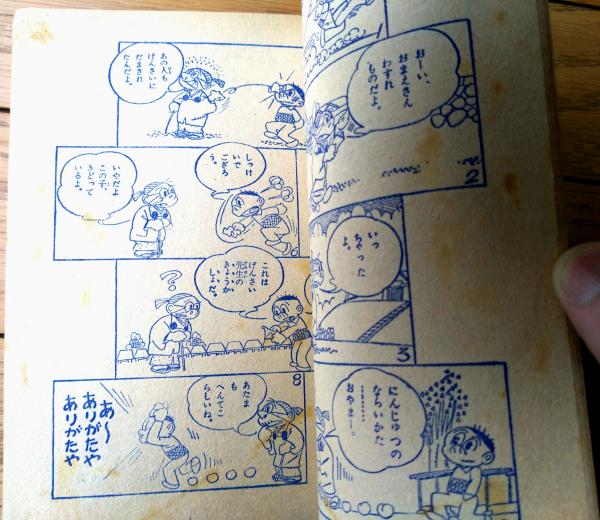 おーい、
おまえさん
わすれ
ものだよ。
2
いっ
ちゃった
よ。
3
にんじゅつの
ならいかた
…………
おやまー。
あの人も
げんさいに
だまされ
たんだよ。
しっけ
いで
ござろ
う。
いやだよ
この子、
きどって
いるよ。
6
これは
げんさい
先生の
きょうか
しょだ。
?
あたま
も
へんてこ
らしいね。
あ〜
ありがたや
ありがたや
8